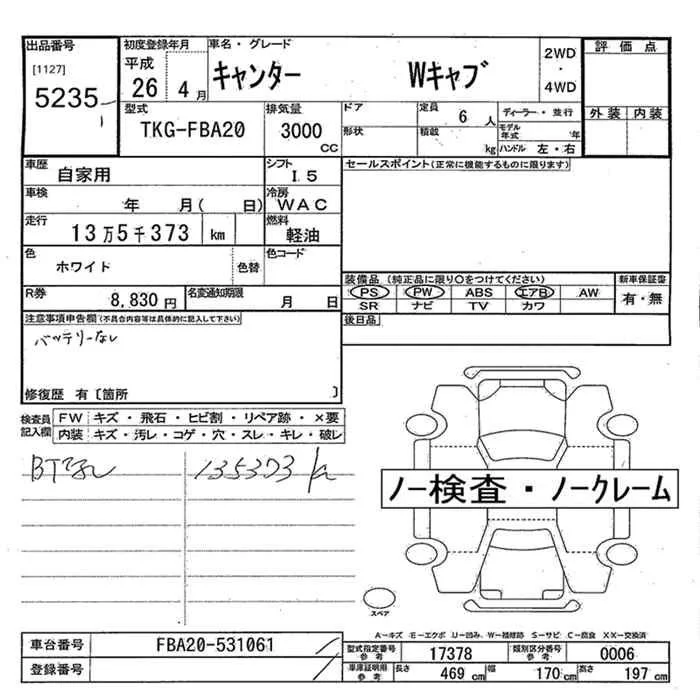 出品番号
[1127]
5235
初度登録年月
平成
26 4月
車名・グレード
キャンター Wキャブ
2WD
・
4WD
評価点
外装 内装
型式
TKG-FBA20
排気量
3000
CC
ドア
形状
定員
6人
積載
kg
ディーラー・並行
モデル年式 年
ハンドル 左・右
車歴
自家用
シフト
I5
車検
年 月( 日)
冷房
WAC
走行
13万5千373 km
燃料
軽油
色
ホワイト
色替
色コード
R券
8,830円
名変通知期限
月 日
セールスポイント(正常に機能するものに限ります)
装備品(純正品に限り○をつけてください)
PS PW ABS エアB AW
SR ナビ TV カワ
新車保証書
有・無
後日品
注意事項申告欄(不具合内容等は具体的に記入して下さい)
バッテリーなし
修復歴 有〔箇所 〕
検査員記入欄
FW キズ・飛石・ヒビ割・リペア跡・×要
内装 キズ・汚レ・コゲ・穴・スレ・キレ・破レ
BTなし 135373
ノー検査・ノークレーム
スペア
A―キズ E―エクボ U―凹み W―補修跡 S―サビ C―腐食 XX―交換済
車台番号
FBA20-531061
登録番号
型式指定番号
参考
17378
類別区分番号
参考
0006
車庫証明用
参考
長さ 469 cm 幅 170 cm 高さ 197 cm